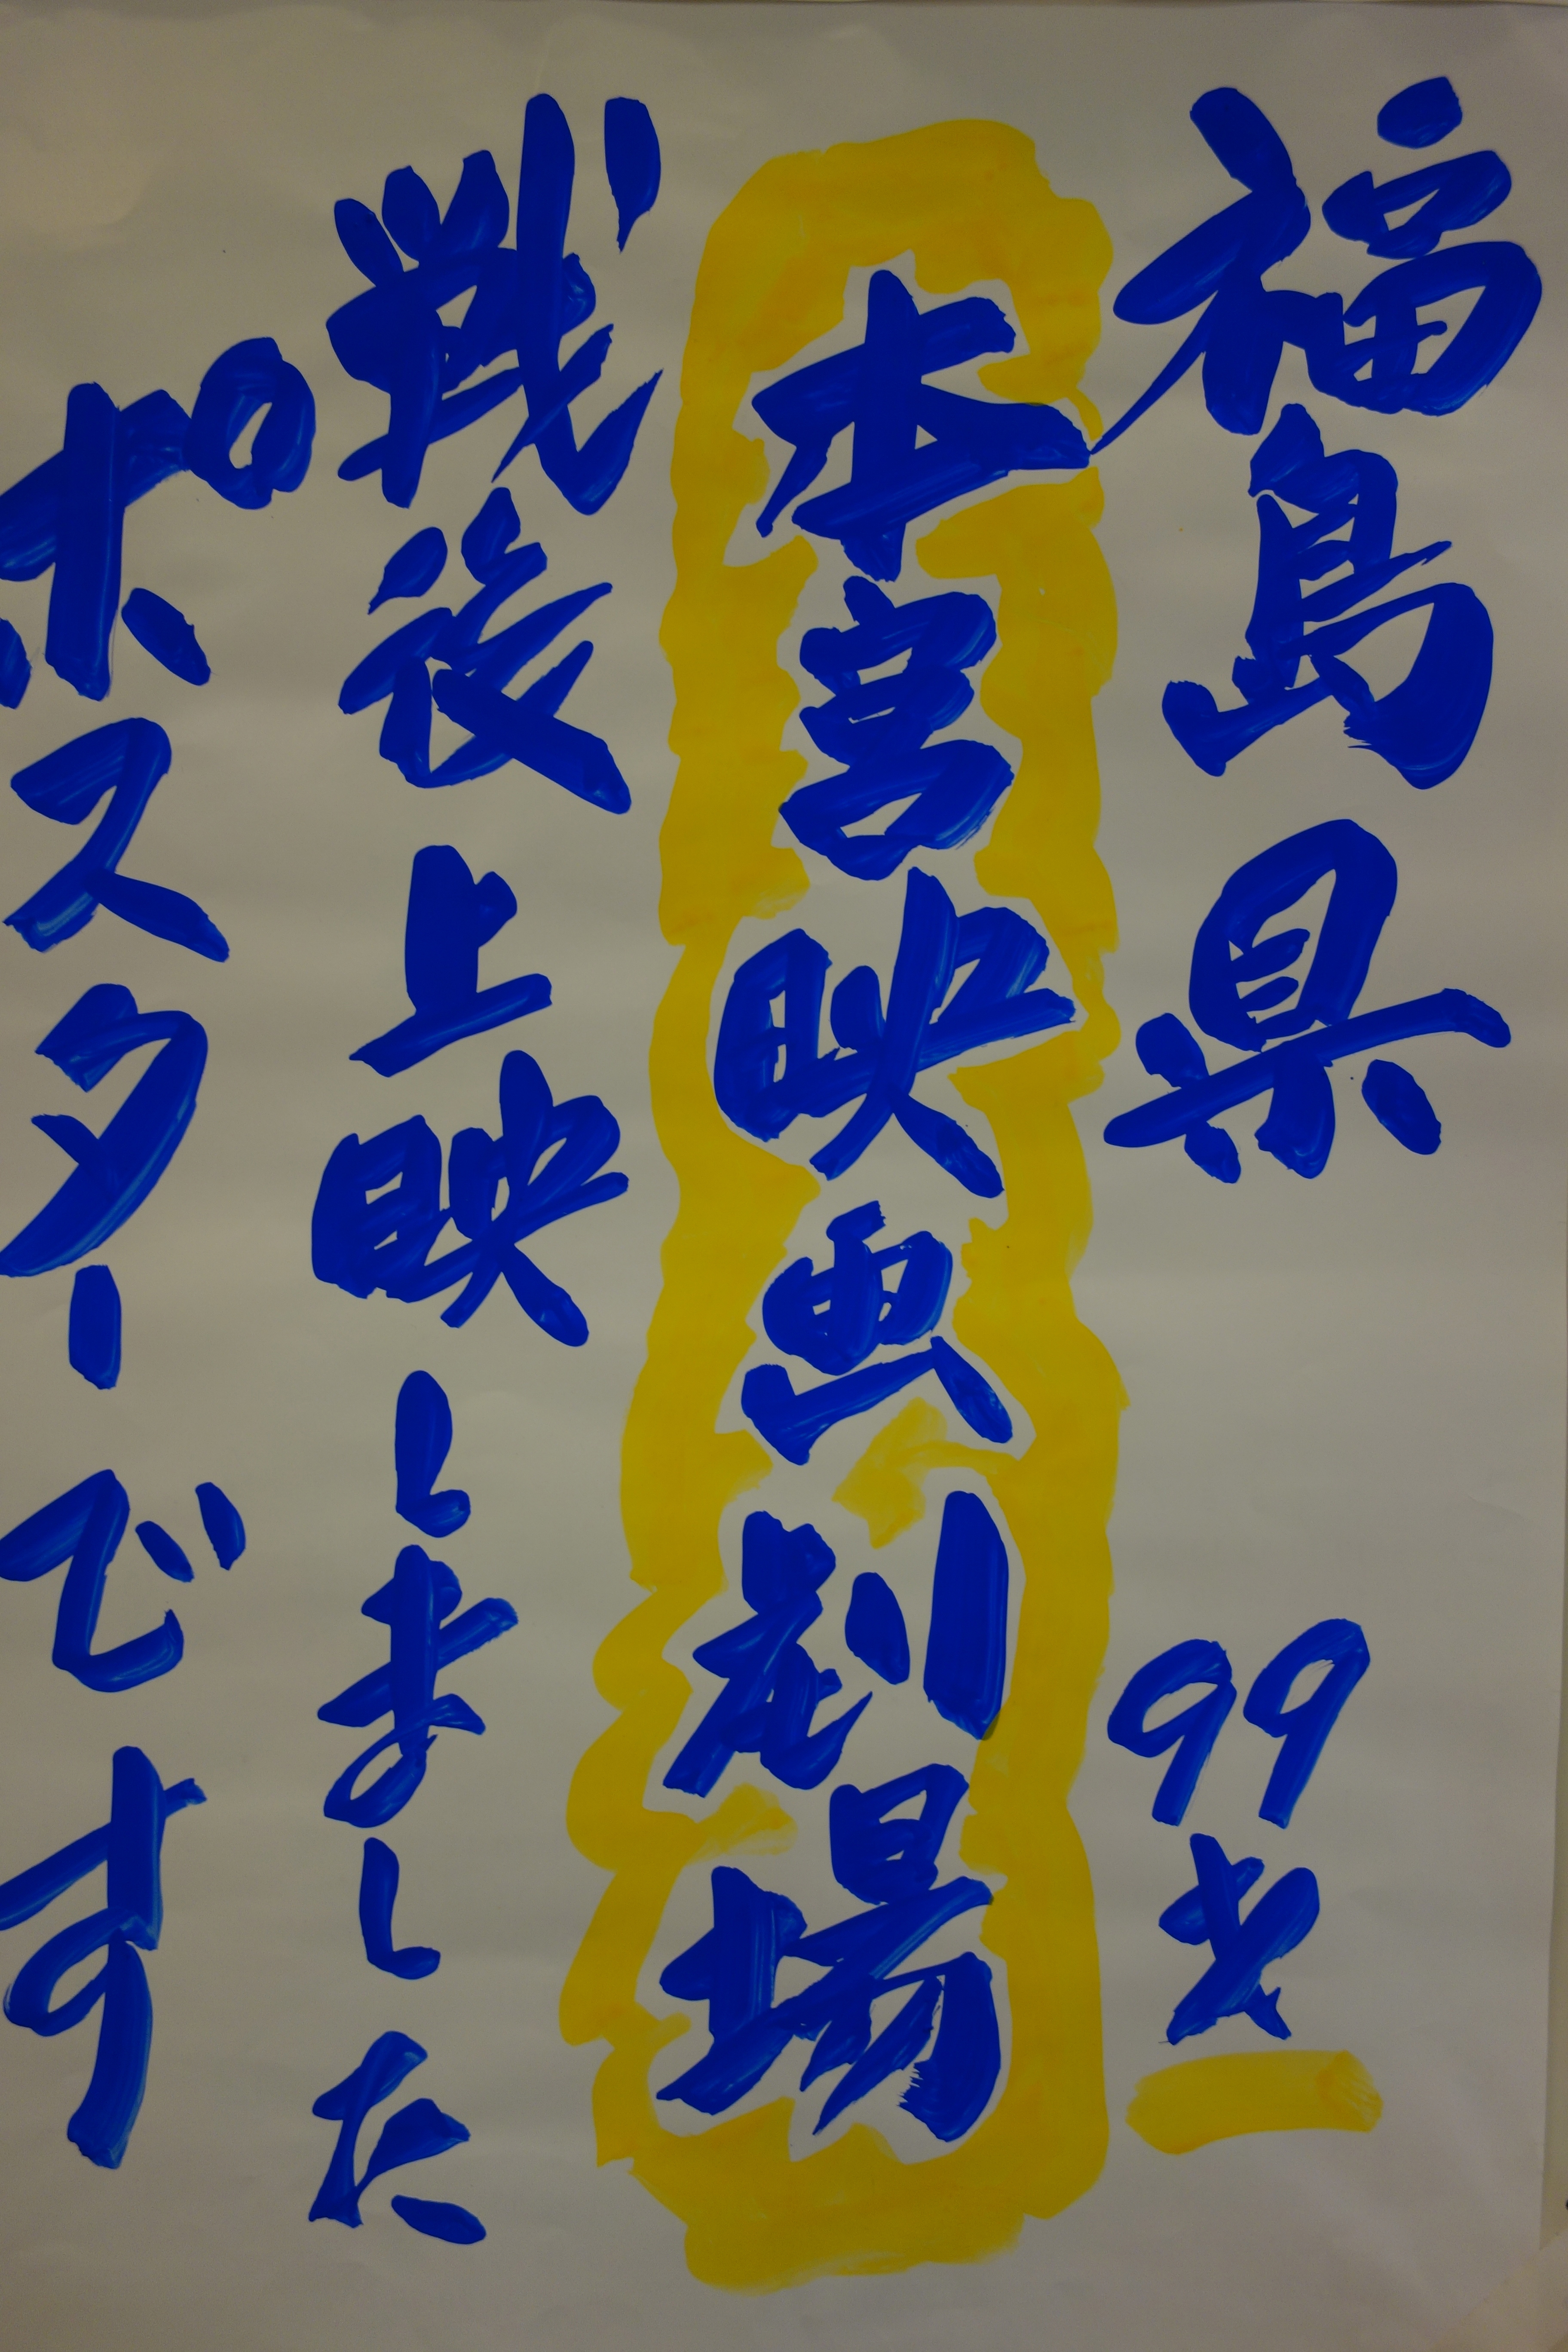 福島県 99才
本宮映画劇場
戦後上映しました
ポスターです